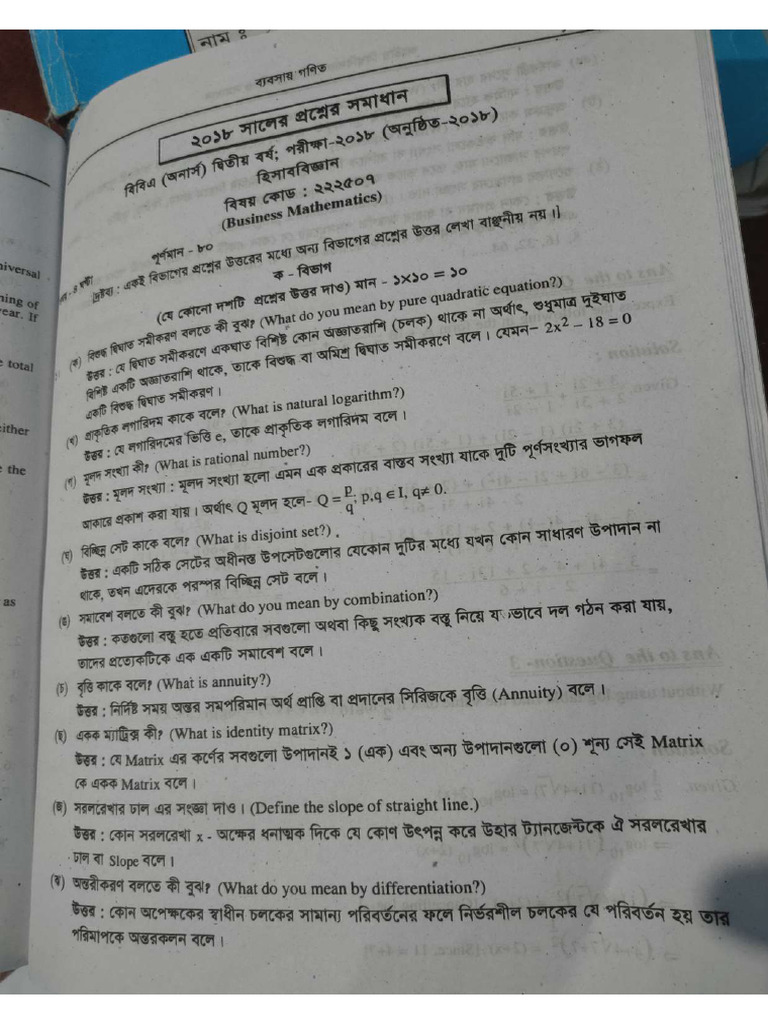 নাম :
ব্যবসায় গণিত
২০১৮ সালের প্রশ্নের সমাধান
বিবিএ (অনার্স) দ্বিতীয় বর্ষ; পরীক্ষা-২০১৮ (অনুষ্ঠিত-২০১৮)
হিসাববিজ্ঞান
বিষয় কোড : ২২২৫০৭
(Business Mathematics)
পূর্ণমান - ৮০
[দ্রষ্টব্য : একই বিভাগের প্রশ্নের উত্তরের মধ্যে অন্য বিভাগের প্রশ্নের উত্তর লেখা বাঞ্ছনীয় নয়।]
ক - বিভাগ
(যে কোনো দশটি প্রশ্নের উত্তর দাও) মান - ১×১০ = ১০
(ক) বিশুদ্ধ দ্বিঘাত সমীকরণ বলতে কী বুঝ? (What do you mean by pure quadratic equation?)
উত্তর : যে দ্বিঘাত সমীকরণে একঘাত বিশিষ্ট কোন অজ্ঞাতরাশি (চলক) থাকে না অর্থাৎ, শুধুমাত্র দুইঘাত
বিশিষ্ট একটি অজ্ঞাতরাশি থাকে, তাকে বিশুদ্ধ বা অমিশ্র দ্বিঘাত সমীকরণে বলে। যেমন– 2x² – 18 = 0
একটি বিশুদ্ধ দ্বিঘাত সমীকরণ।
(খ) প্রাকৃতিক লগারিদম কাকে বলে? (What is natural logarithm?)
উত্তর : যে লগারিদমের ভিত্তি e, তাকে প্রাকৃতিক লগারিদম বলে।
(গ) মূলদ সংখ্যা কী? (What is rational number?)
উত্তর : মূলদ সংখ্যা : মূলদ সংখ্যা হলো এমন এক প্রকারের বাস্তব সংখ্যা যাকে দুটি পূর্ণসংখ্যার ভাগফল
আকারে প্রকাশ করা যায়। অর্থাৎ Q মূলদ হলে- Q = p/q; p.q ∈ I, q≠ 0.
(ঘ) বিচ্ছিন্ন সেট কাকে বলে? (What is disjoint set?)
উত্তর : একটি সঠিক সেটের অধীনস্ত উপসেটগুলোর যেকোন দুটির মধ্যে যখন কোন সাধারণ উপাদান না
থাকে, তখন এদেরকে পরস্পর বিচ্ছিন্ন সেট বলে।
(ঙ) সমাবেশ বলতে কী বুঝ? (What do you mean by combination?)
উত্তর : কতগুলো বস্তু হতে প্রতিবারে সবগুলো অথবা কিছু সংখ্যক বস্তু নিয়ে যতভাবে দল গঠন করা যায়,
তাদের প্রত্যেকটিকে এক একটি সমাবেশ বলে।
(চ) বৃত্তি কাকে বলে? (What is annuity?)
উত্তর : নির্দিষ্ট সময় অন্তর সমপরিমান অর্থ প্রাপ্তি বা প্রদানের সিরিজকে বৃত্তি (Annuity) বলে।
(ছ) একক ম্যাট্রিক্স কী? (What is identity matrix?)
উত্তর : যে Matrix এর কর্ণের সবগুলো উপাদানই ১ (এক) এবং অন্য উপাদানগুলো (০) শূন্য সেই Matrix
কে একক Matrix বলে।
(জ) সরলরেখার ঢাল এর সংজ্ঞা দাও। (Define the slope of straight line.)
উত্তর : কোন সরলরেখা x - অক্ষের ধনাত্মক দিকে যে কোণ উৎপন্ন করে উহার ট্যানজেন্টকে ঐ সরলরেখার
ঢাল বা Slope বলে।
(ঝ) অন্তরীকরণ বলতে কী বুঝ? (What do you mean by differentiation?)
উত্তর : কোন অপেক্ষকের স্বাধীন চলকের সামান্য পরিবর্তনের ফলে নির্ভরশীল চলকের যে পরিবর্তন হয় তার
পরিমাপকে অন্তরকলন বলে।